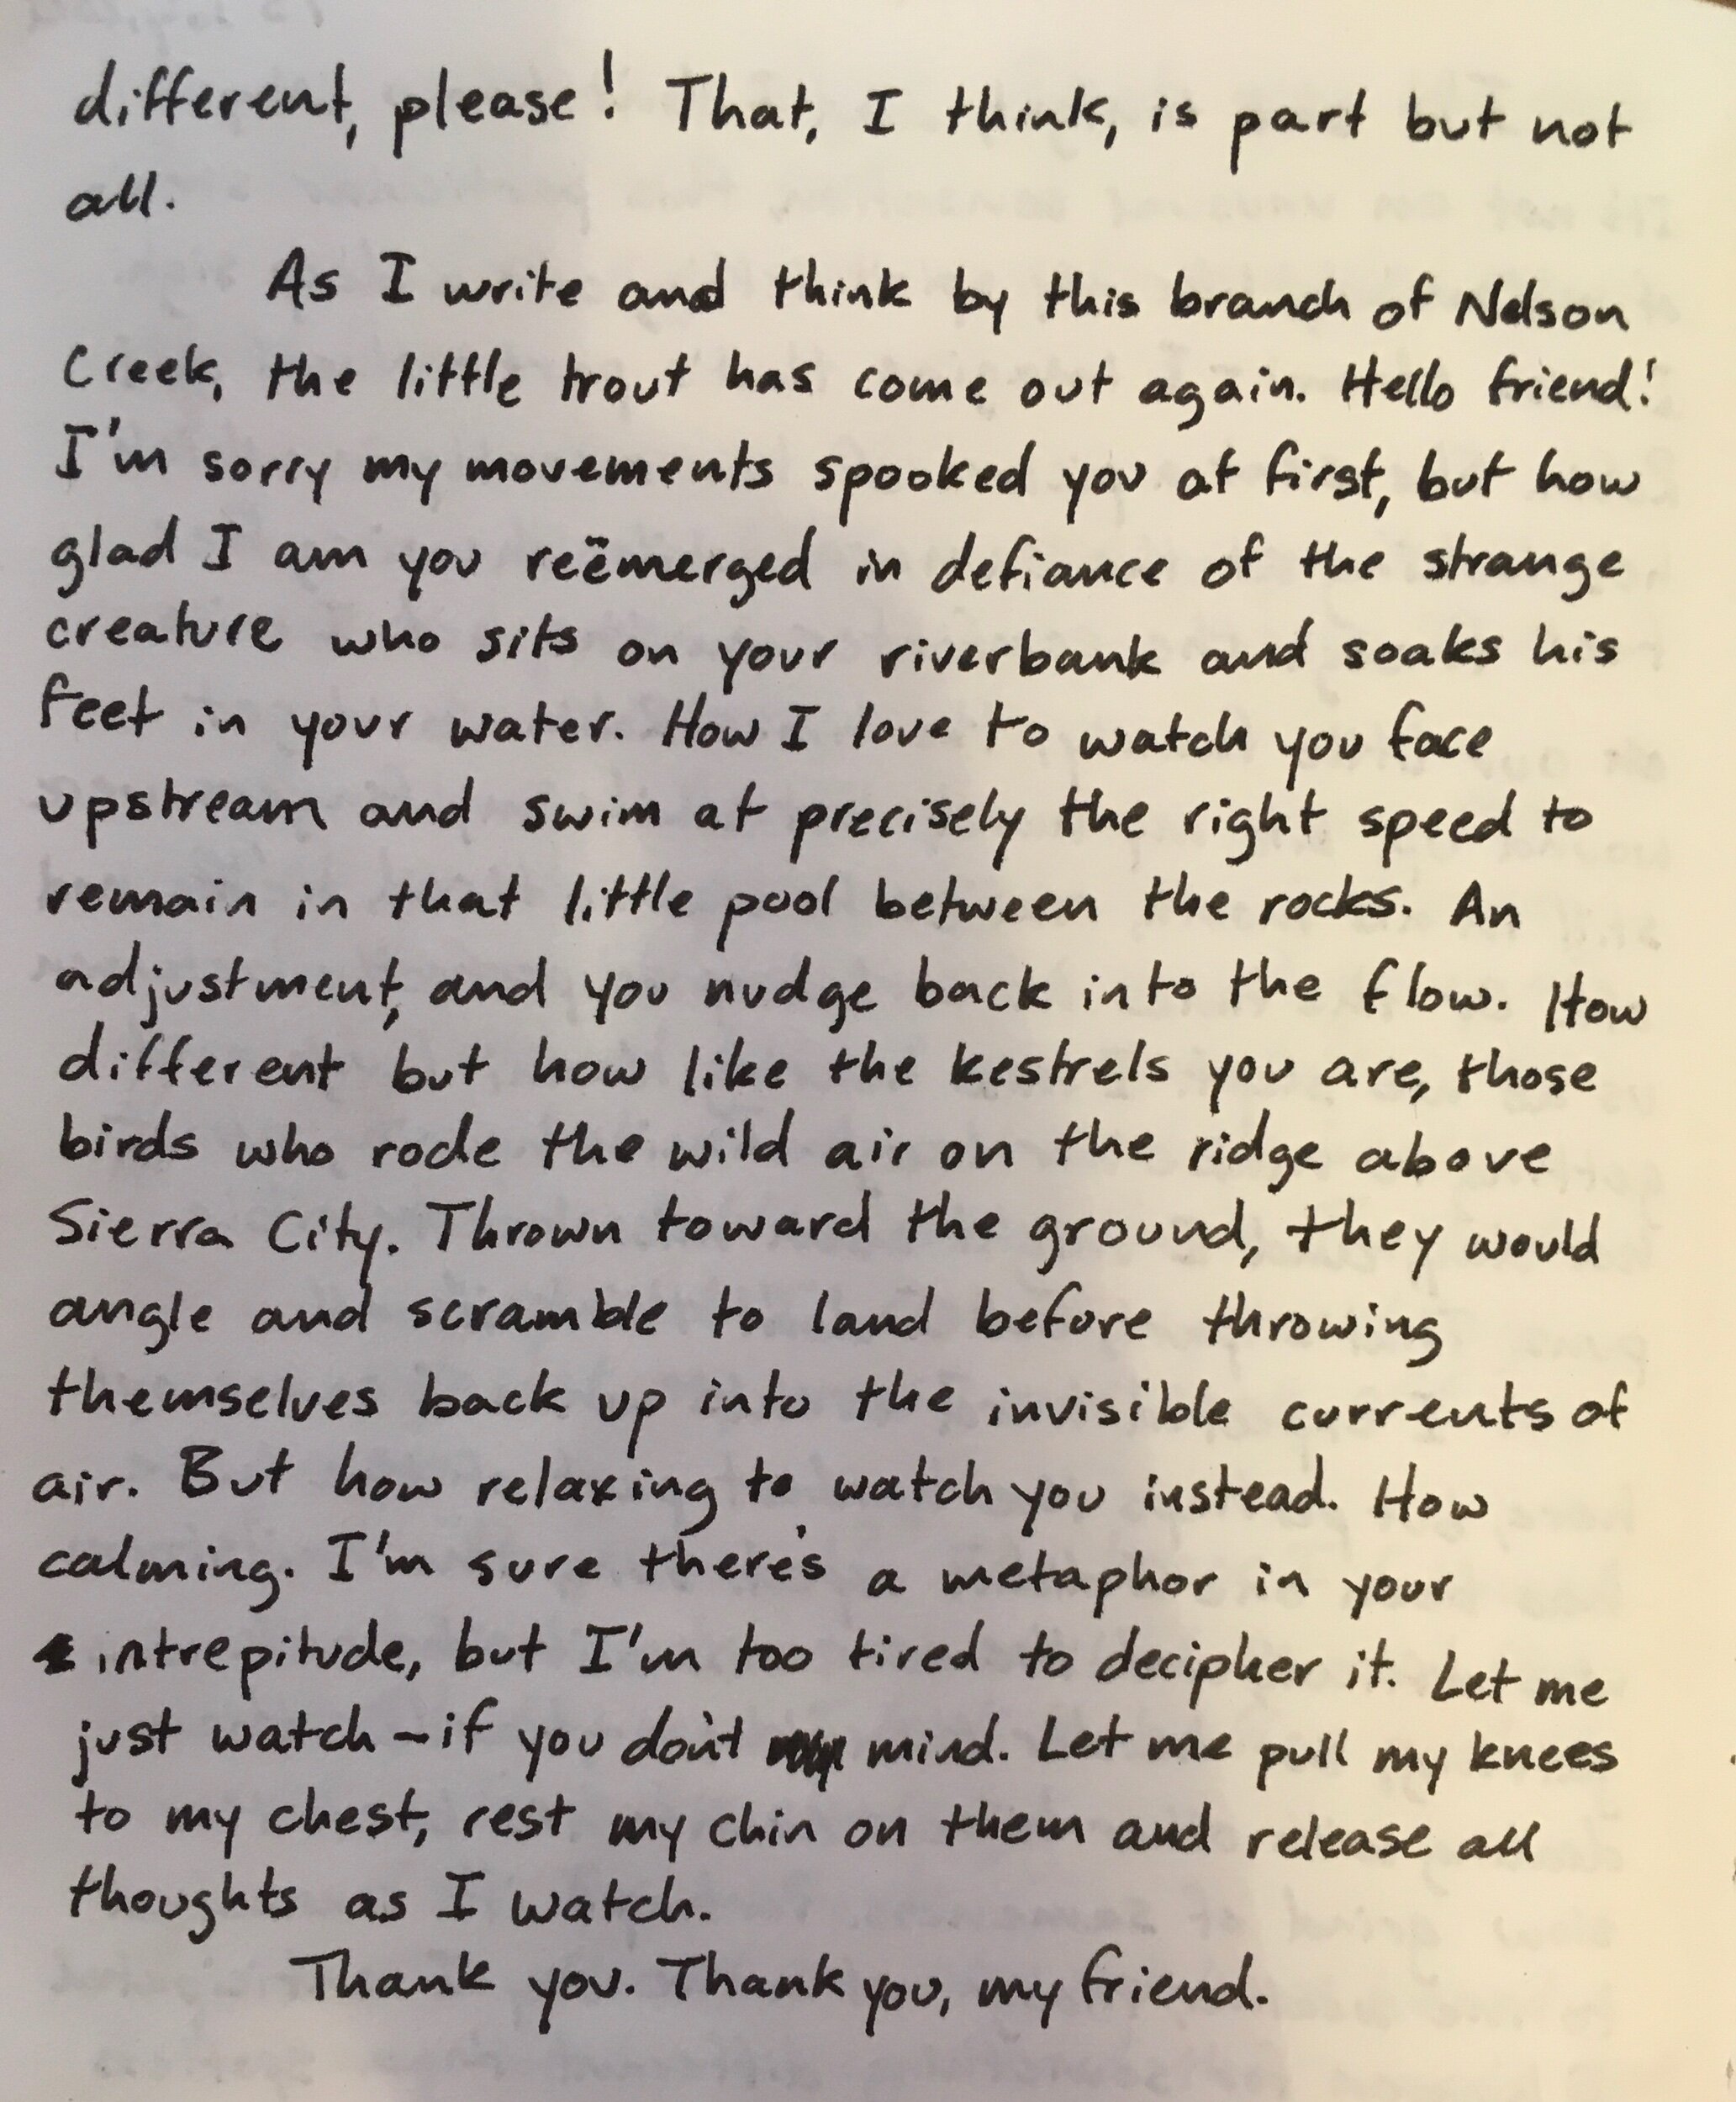 different, please! That, I think, is part but not
all.
As I write and think by this branch of Nelson
Creek, the little trout has come out again. Hello friend!
I'm sorry my movements spooked you at first, but how
glad I am you reëmerged in defiance of the strange
creature who sits on your riverbank and soaks his
feet in your water. How I love to watch you face
upstream and swim at precisely the right speed to
remain in that little pool between the rocks. An
adjustment, and you nudge back into the flow. How
different but how like the kestrels you are, those
birds who rode the wild air on the ridge above
Sierra City. Thrown toward the ground, they would
angle and scramble to land before throwing
themselves back up into the invisible currents of
air. But how relaxing to watch you instead. How
calming. I'm sure there's a metaphor in your
intrepitude, but I'm too tired to decipher it. Let me
just watch – if you don't mind. Let me pull my knees
to my chest, rest my chin on them and release all
thoughts as I watch.
Thank you. Thank you, my friend.